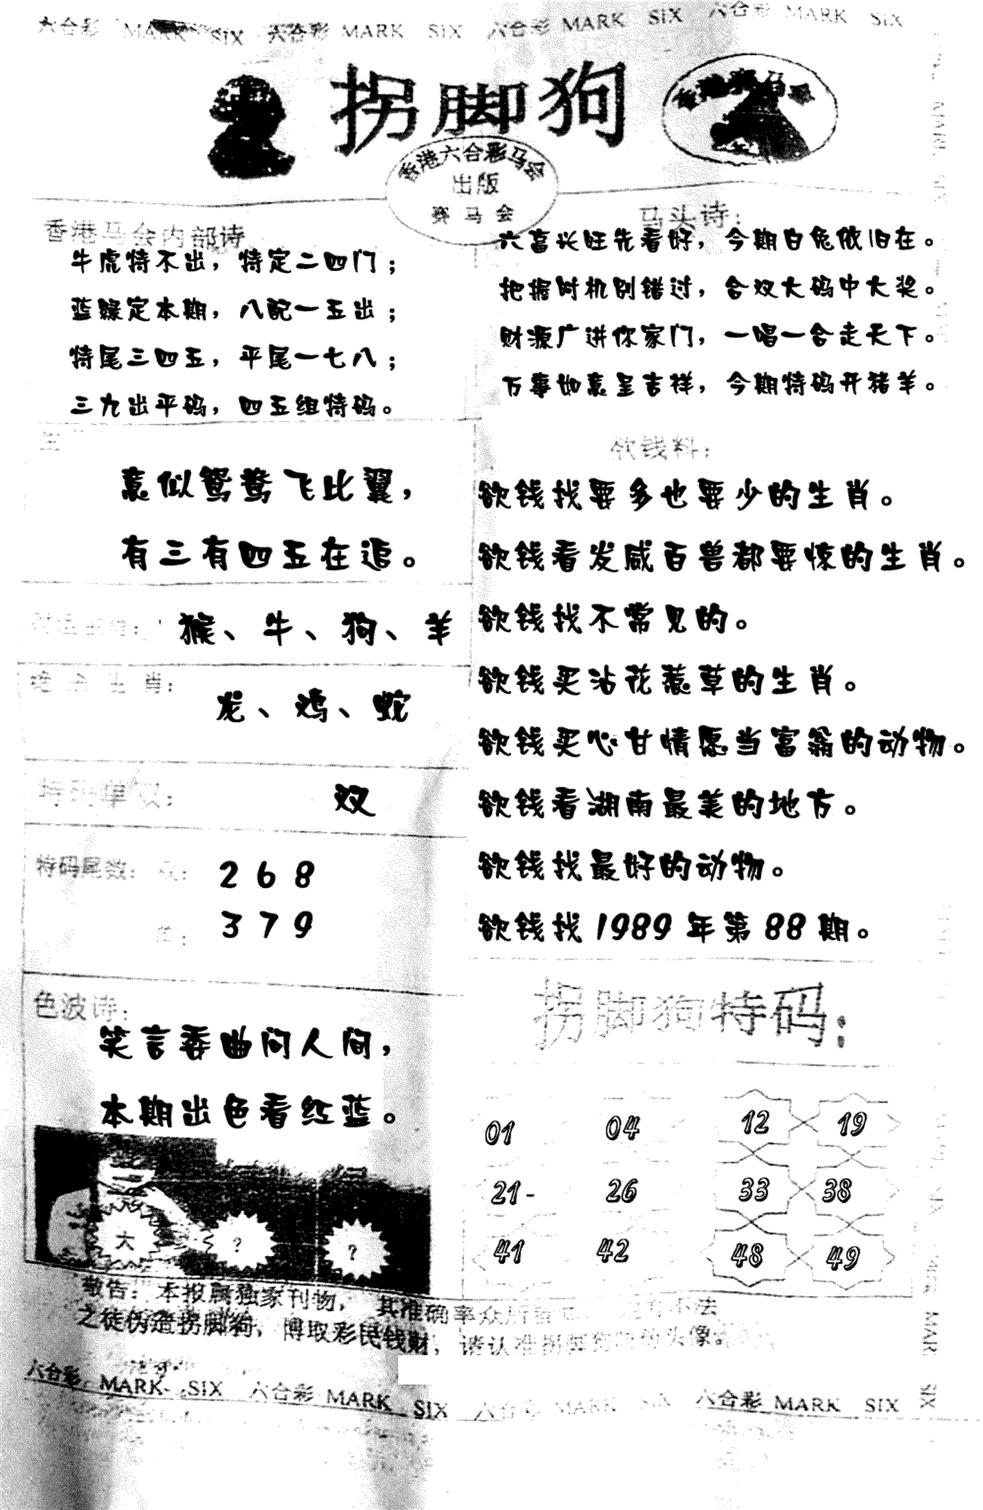 六合彩 MARK SIX 六合彩 MARK SIX 六合彩 MARK SIX 六合彩 MARK SIX
拐脚狗
香港赛马会
香港六合彩马会
出版
赛马会
香港马会内部诗
牛虎特不出，特定二四门；
蓝绿定本期，八配一五出；
特尾三四五，平尾一七八；
三九出平码，四五组特码。
马头诗：
六畜兴旺先看好，今期白兔依旧在。
把握时机别错过，合双大码中大奖。
财源广进你家门，一唱一合走天下。
万事如意呈吉祥，今期特码开猪羊。
意似鸳鸯飞比翼，
有三有四五在追。
猴、牛、狗、羊
绝杀生肖：
龙、鸡、蛇
特码单双：
双
特码尾数：双：
2 6 8
3 7 9
色波诗：
笑言委曲问人间，
本期出色看红蓝。
大 ? ?
欲钱料：
欲钱找要多也要少的生肖。
欲钱看发威百兽都要惊的生肖。
欲钱找不常见的。
欲钱买沾花惹草的生肖。
欲钱买心甘情愿当富翁的动物。
欲钱看湖南最美的地方。
欲钱找最好的动物。
欲钱找1989年第88期。
拐脚狗特码：
01 04 12 19
21- 26 33 38
41 42 48 49
敬告：本报属独家刊物，其准确率众所皆 不法
之徒伪造拐脚狗，博取彩民钱财，请认准拐脚狗 头像。
六合彩 MARK SIX 六合彩 MARK SIX 六合彩 MARK SIX 六合彩 MARK SIX